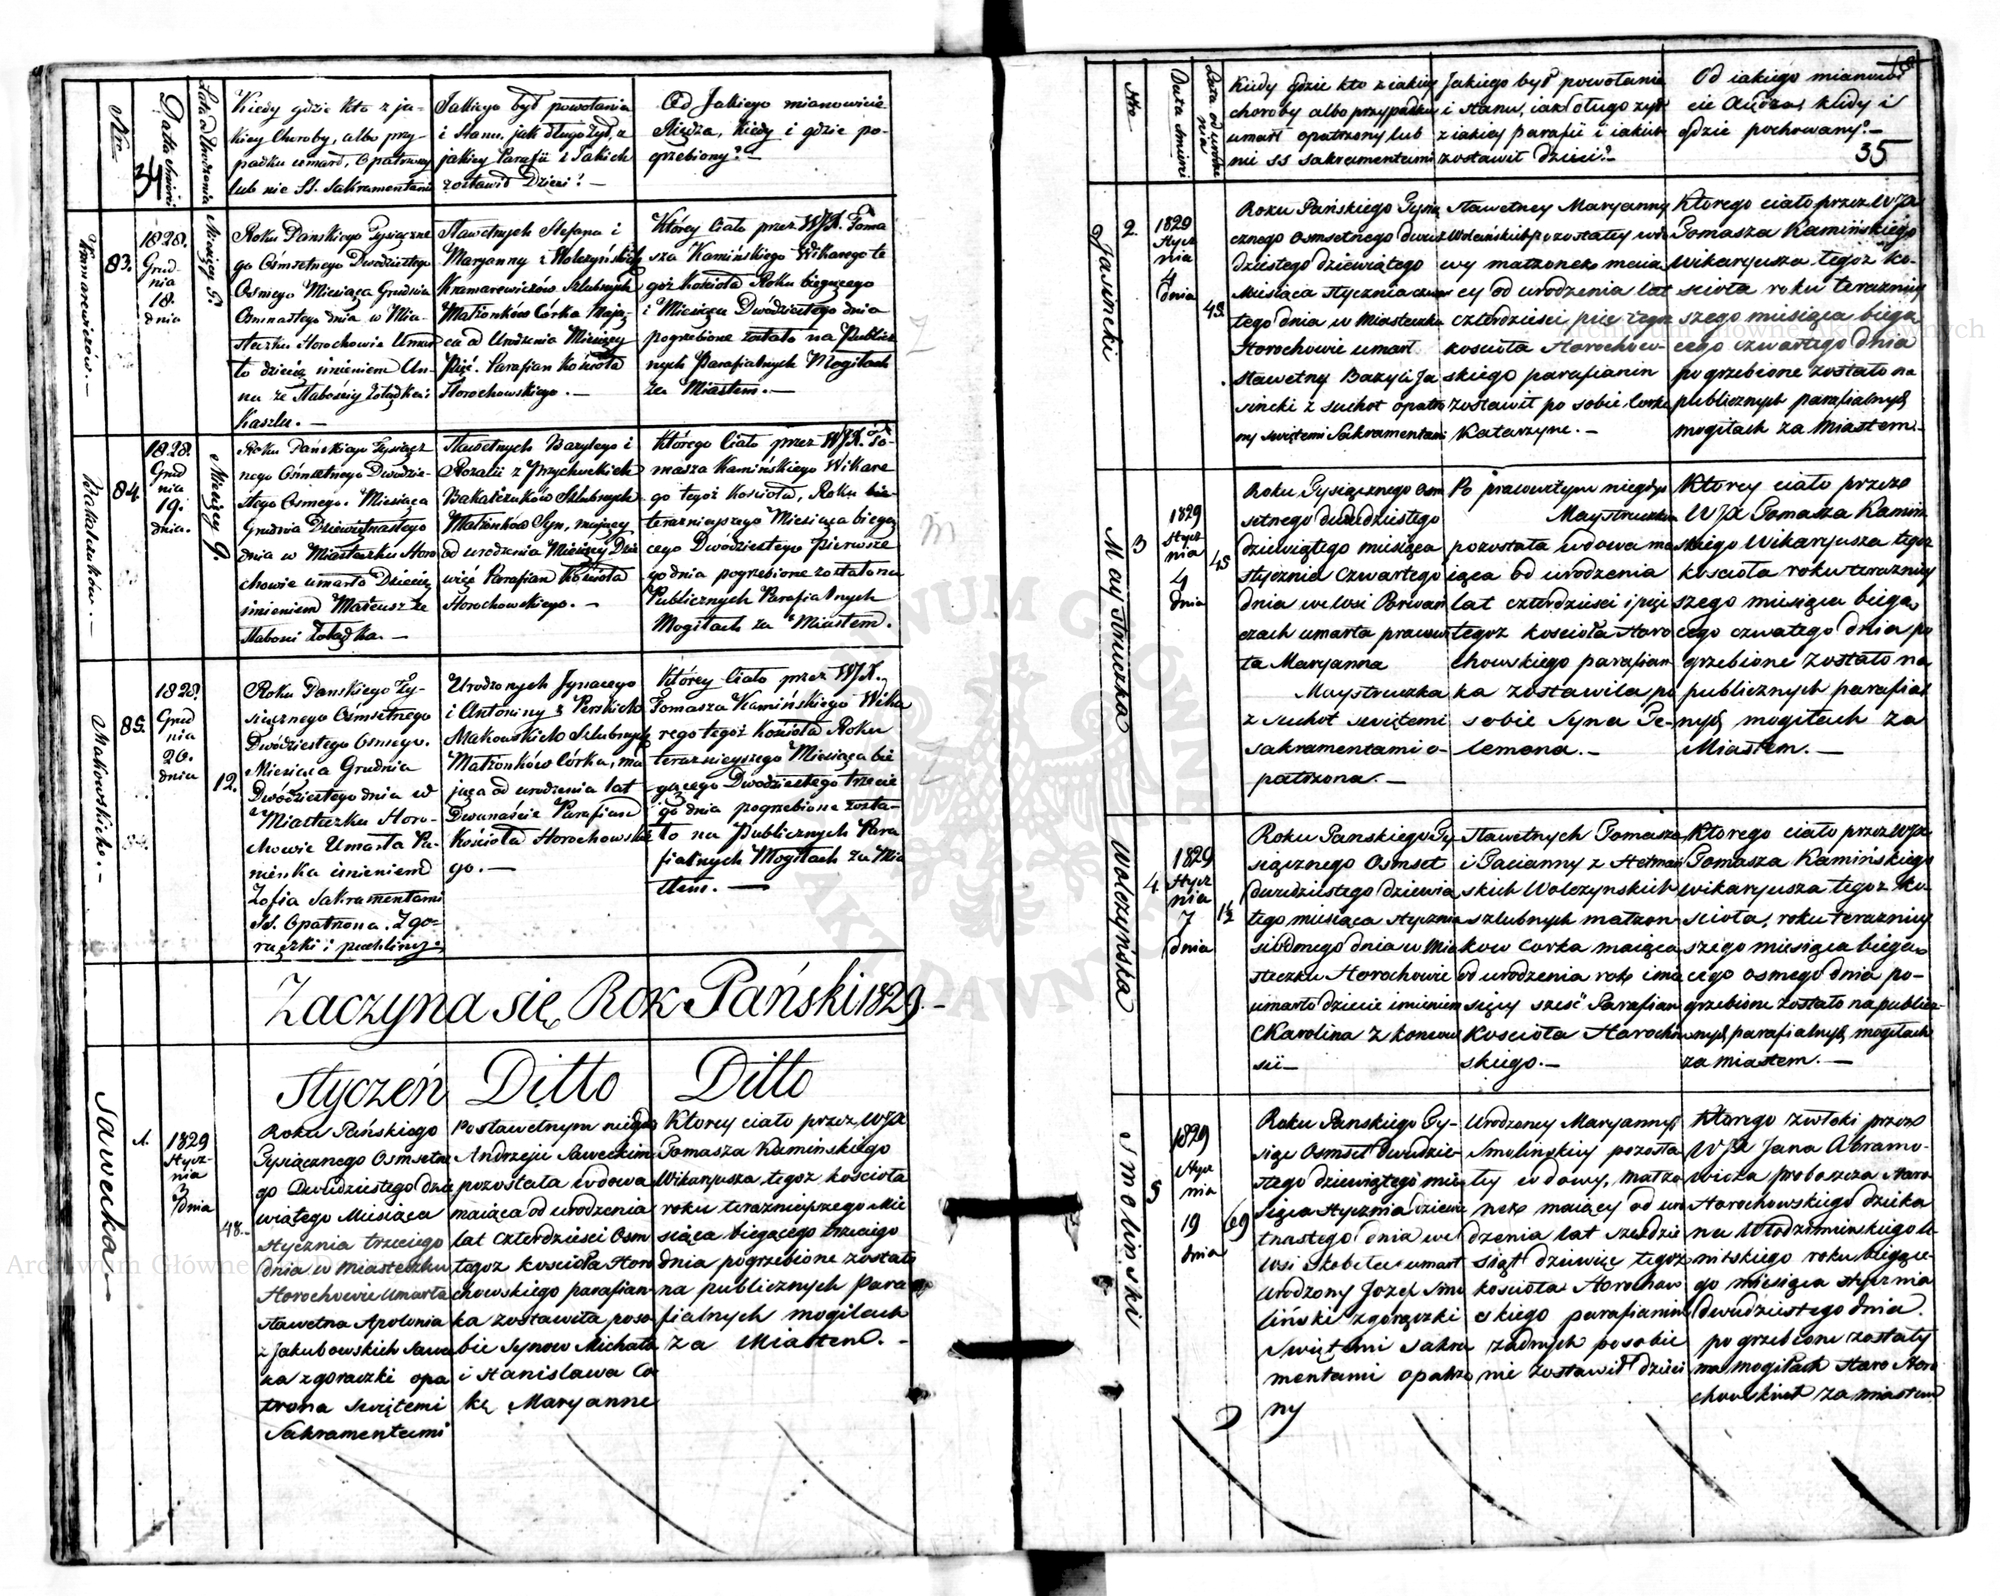 Nro
34
Datta Smierci
Lata od Urodzenia
Kiedy gdzie kto z ja-
kiey Choroby, albo przy-
padku umarł, Opatrzony
lub nie SS. Sakramentami
Jakiego był powołania
i Stanu, jak długo żył, z
jakiey Parafii i Jakich
zostawił Dzieci? —
Od Jakiego mianowicie
Xiędza, kiedy i gdzie po-
grzebiony? —
Kramarewiczów. —
83.
1828.
Grud-
nia
18.
dnia
Miesięcy 5.
Roku Pańskiego Tysiączne
go Ośmsetnego Dwódziestego
Osmego Miesiąca Grudnia
Osmnastego dnia w Mia-
steczku Horochowie Umar
ło dziecię imieniem An-
na ze Słabości Żołądka i
Kaszlu. —
Sławetnych Stefana i
Maryanny z Wolczyńskich
Kramarewiczów Szlubnych
Małżonków Córka Mają-
ca od Urodzenia Miesięcy
Pięć. Parafian Kościoła
Horochowskiego. —
Którey Ciało przez WJX. Toma
sza Kamińskiego Wikarego te
goż Kościoła Roku bieżącego
i Miesiąca Dwódziestego dnia
pogrzebione zostało na Publicz
nych Parafialnych Mogiłach
za Miastem. —
84.
1828.
Grud
nia
19.
dnia.
Miesięcy 9.
Roku Pańskiego Tysiącz
nego Ośmsetnego Dwódzie-
stego Osmego. Miesiąca
Grudnia Dziewiętnastego
dnia w Miasteczku Horo
chowie umarło Dziecię
imieniem Mateusz ze
słabosci Żołądka. —
Sławetnych Bazylego i
Rozalii z Przychockich
Bakalczuków Szlubnych
Małżonków Syn, mający
od urodzenia Miesięcy Dzie
więć Parafian Kościoła
Horochowskiego. —
Którego Ciało przez WJX. To-
masza Kamińskiego Wikare
go tegoż Kościoła, Roku
teraznieyszego Miesiąca bieżą
cego Dwódziestego Pierwsze
go dnia pogrzebione zostało na
Publicznych Parafialnych
Mogiłach za Miastem.
Makowskich. —
85.
1828.
Grud
nia
20.
dnia
12.
Roku Panskiego Ty-
siącznego Ośmsetnego
Dwódziestego Osmego.
Miesiąca Grudnia
Dwódziestego dnia w
Miasteczku Horo-
chowie Umarła Pa-
nienka imieniem
Zofia Sakramentami
SS. Opatrzona. Z go-
rączki i puchliny.
Urodzonych Jgnacego
i Antoniny z Perskich
Makowskich Szlubnych
Małżonków Córka, ma
jąca od urodzenia lat
Dwanaście Parafian
Kościoła Horochowskie
go. —
Którey Ciało przez WJX.
Tomasza Kamińskiego Wika
rego tegoż Kościoła Roku
teraznieyszego Miesiąca bie
żącego Dwódziestego trzecie
go dnia pogrzebione zosta-
ło na Publicznych Para
fialnych Mogiłach za Mia
stem. —
Zaczyna się Rok Pański 1829. —
Styczeń Ditto Ditto
Sawecka
1.
1829
Stycz-
nia
3
dnia
48.
Roku Pańskiego
Tysiącznego Osmsetne
go Dwudziestego dzie
wiątego Miesiąca
Stycznia trzeciego
dnia w Miasteczku
Horochowie umarła
sławetna Apolonia
z Jakubowskich Sawe
cka z gorączki opa
trzona Swiętemi
Sakramentami
Po sławetnym niegdy
Andrzeju Saweckim
pozostała wdowa
maiąca od urodzenia
lat czterdzieści Osm
tegoż kościoła Horo
chowskiego parafian-
ka zostawiła po so
bie Synow Michała
i Stanisława Co
kę Maryannę
Ktorey ciało przez WJX
Tomasza Kamińskiego
Wikaryusza tegoż kościoła
roku teraznieyszego Mie
siąca bieżącego trzeciego
dnia pogrzebione zostało
na publicznych para
fialnych mogiłach
za Miastem. —
Nro
Datta smierci
Lata od urodze
nia
Kiedy gdzie kto z iakiey
choroby albo przypadku
umarł opatrzony lub
nie SS Sakramentami
Jakiego był powołania
i stanu, iak długo żył
z iakiey parafii i iakich
zostawił dzieci? —
Od iakiego mianowi
cie Xiędza, kiedy i
gdzie pochowany? —
35
Jasincki
2.
1829
stycz
nia
4
dnia
45.
Roku Pańskiego Tysią
cznego Osmsetnego dwu
dziestego dziewiątego
Miesiąca stycznia czwar
tego dnia w Miasteczku
Horochowie umarł
sławetny Bazyli Ja
sincki z suchot opatrzo
ny swiętemi Sakramentami
Sławetney Maryanny
pozostałey wdo
wy małżonek maią
cy od urodzenia lat
czterdzieści pięć tegoż
kościoła Horochow-
skiego parafianin
zostawił po sobie Corkę
Katarzynę. —
Ktorego ciało przez WJX
Tomasza Kamińskiego
Wikaryusza tegoż ko-
scioła roku teraźniey
szego miesiąca bieżą
cego czwartego dnia
pogrzebione zostało na
publicznych parafialnych
mogiłach za Miastem. —
Maystruczka
3
1829
stycz
nia
4
dnia
45
Roku Tysiącznego osm
setnego dwudziestego
dziewiątego miesiąca
stycznia czwartego
dnia we wsi
umarła pracowi
ta Maryanna
Maystruczka
z suchot swiętemi
sakramentami o-
patrzona. —
Po pracowitym niegdys
Maystruczku
pozostała wdowa ma
iąca od urodzenia
lat czterdzieści i pięć
tegoż kościoła Horo
chowskiego parafian
ka zostawiła po
sobie Syna Fe-
lemona. —
Ktorey ciało przez
WJX Tomasza Kamin
skiego Wikaryusza tegoż
koscioła roku terazniey
szego miesiąca bieżą
cego czwatego dnia po
grzebione zostało na
publicznych parafial
nych mogiłach za
Miastem. —
Wolczyńska
4
1829
stycz
nia
7
dnia
1½
Roku Panskiego Ty
siącznego Osmset
dwudziestego dziewią
tego miesiąca stycznia
siodmego dnia w Mia
steczku Horochowie
umarło dziecie imieniem
Karolina z konwul
sii —
Sławetnych Tomasza
i Tacianny z Hetman
skich Wolczynskich
szlubnych małżon-
kow Corka maiąca
od urodzenia rok i mie
sięcy sześć Parafian
kościoła Horochow
skiego. —
Ktorego ciało przez WJX
Tomasza Kamińskiego
wikaryusza tegoż ko-
scioła, roku terazniey
szego miesiąca bieżą
cego osmego dnia po-
grzebione zostało na publicz-
nych parafialnych mogiłach
za miastem. —
Smolinski
5
1829
stycz
nia
19
dnia
69
Roku Panskiego Ty-
siąc Osmset dwudzie-
stego dziewiątego mie
siąca stycznia dziewię
tnastego dnia we
wsi Skobełce umarł
urodzony Jozef Smo
liński z gorączki
Swiętemi Sakra
mentami opatrzo
ny
Urodzoney Maryanny
Smolinskiey pozosta
łey wdowy, małżo
nek maiący od uro
dzenia lat sześćdzie
siąt dziewięć tegoż
kościoła Horochow
skiego parafianin
żadnych po sobie
nie zostawił dzieci
Ktorego zwłoki przez
WJX Jana Abramo-
wicza proboszcza
Horochowskiego dzieka
na Włodzimirskiego
roku bieżące-
go miesiąca stycznia
dwudziestego dnia
pogrzebione zostały
na mogiłach Staro Horo
chowskich za miastem
Archiwum Główne Akt Dawnych